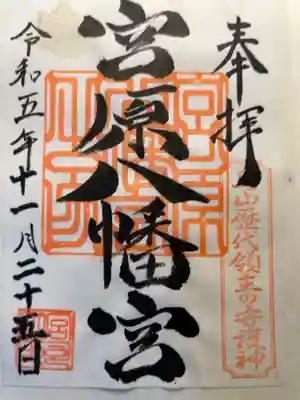 奉拝
宮原八幡宮
令和五年十一月二十五日
山歴代領主の守護神